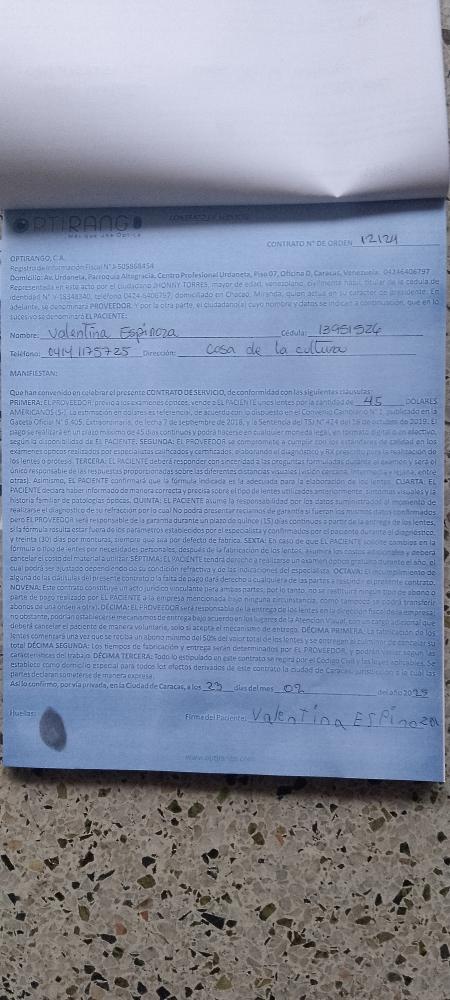 OPTIRANGO
Más que una Óptica
CONTRATO DE SERVICIO
CONTRATO N° DE ORDEN 12124
OPTIRANGO, C.A.
Registro de Información Fiscal N° J-505868454
Domicilio: Av. Urdaneta, Parroquia Altagracia, Centro Profesional Urdaneta, Piso 07, Oficina D, Caracas, Venezuela. 04246406797
Representada en este acto por el ciudadano JHONNY TORRES, mayor de edad, venezolano, civilmente hábil, titular de la cédula de
identidad N° V-18348340, teléfono 0424-6406797, domiciliado en Chacao, Miranda, quien actúa en su carácter de presidente. En
adelante, se denominará PROVEEDOR. Y por la otra parte, el ciudadano(a) cuyo nombre y datos se indican a continuación, que en lo
sucesivo se denominará EL PACIENTE:
Nombre: Valentina Espinoza Cédula: 13951526
Teléfono: 0414 1175725 Dirección: Casa de la cultura
MANIFIESTAN:
Que han convenido en celebrar el presente CONTRATO DE SERVICIO, de conformidad con las siguientes cláusulas:
PRIMERA: EL PROVEEDOR, previo a los exámenes ópticos, vende a EL PACIENTE unos lentes por la cantidad de 45 DOLARES
AMERICANOS ($-). La estimación en dólares es referencial, de acuerdo con lo dispuesto en el Convenio Cambiario N° 1, publicado en la
Gaceta Oficial N° 6.405, Extraordinaria, de fecha 7 de septiembre de 2018, y la Sentencia del TSJ N° 424 del 16 de octubre de 2019. El
pago se realizará en un plazo máximo de 45 días continuos y podrá hacerse en cualquier moneda legal, en formato digital o en efectivo,
según la disponibilidad de EL PACIENTE. SEGUNDA: EL PROVEEDOR se compromete a cumplir con los estándares de calidad en los
exámenes ópticos realizados por especialistas calificados y certificados, elaborando el diagnóstico y RX prescrito para la realización de
los lentes o prótesis. TERCERA: EL PACIENTE deberá responder con sinceridad a las preguntas formuladas durante el examen y será el
único responsable de las respuestas proporcionadas sobre las diferentes distancias visuales (visión cercana, intermedia y lejana, entre
otras). Asimismo, EL PACIENTE confirmará que la fórmula indicada es la adecuada para la elaboración de los lentes. CUARTA: EL
PACIENTE declara haber informado de manera correcta y precisa sobre el tipo de lentes utilizados anteriormente, síntomas visuales y la
historia familiar de patologías ópticas. QUINTA: EL PACIENTE asume la responsabilidad por los datos suministrados al momento de
realizarse el diagnóstico de su refracción por lo cual No podrá presentar reclamos de garantía si fueron los mismos datos confirmados
pero EL PROVEEDOR será responsable de la garantía durante un plazo de quince (15) días continuos a partir de la entrega de los lentes,
si la fórmula resulta estar fuera de los parámetros establecidos por el especialista y confirmados por el paciente durante el diagnóstico,
y treinta (30) días por monturas, siempre que sea por defecto de fabrica. SEXTA: En caso de que EL PACIENTE solicite cambios en la
fórmula o tipo de lentes por necesidades personales, después de la fabricación de los lentes, asumirá los costos adicionales y deberá
cancelar el costo del material a utilizar. SÉPTIMA: EL PACIENTE tendrá derecho a realizarse un examen óptico gratuito durante el año, el
cual podrá ser ajustado dependiendo de su condición refractiva y de las indicaciones del especialista. OCTAVA: El incumplimiento de
alguna de las cláusulas del presente contrato o la falta de pago dará derecho a cualquiera de las partes a rescindir el presente contrato.
NOVENA: Este contrato constituye un acto jurídico vinculante para ambas partes; por lo tanto, no se restituirá ningún tipo de abono o
parte de pago realizado por EL PACIENTE a la empresa mencionada bajo ninguna circunstancia, como tampoco se podrá transferir
abonos de una orden a otra). DÉCIMA: EL PROVEEDOR será responsable de la entrega de los lentes en la dirección fiscal de la empresa;
no obstante, podrán establecerse mecanismos de entrega bajo acuerdo en los lugares de Atención Visual, con un cargo adicional que
deberá cancelar el paciente de manera voluntaria, solo si acepta el mecanismo de entrega. DÉCIMA PRIMERA: La fabricación de los
lentes comenzará una vez que se reciba un abono mínimo del 50% del valor total de los lentes y se entregan al culminar de cancelar su
total DÉCIMA SEGUNDA: Los tiempos de fabricación y entrega serán determinados por EL PROVEEDOR, y podrán variar según las
características del trabajo. DÉCIMA TERCERA: Todo lo estipulado en este contrato se regirá por el Código Civil y las leyes aplicables. Se
establece como domicilio especial para todos los efectos derivados de este contrato la ciudad de Caracas, jurisdicción a la cual las
partes declaran someterse de manera expresa.
Así lo confirmo, por vía privada, en la Ciudad de Caracas, a los 23 días del mes 02 del año 2025
Huellas: Firma del Paciente: Valentina Espinoza
www.optirango.com